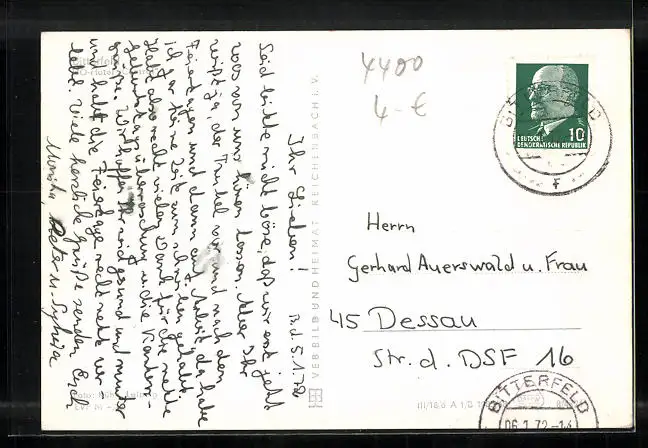 4400
4-€
BITTERFELD
DEUTSCHE
DEMOKRATISCHE REPUBLIK
10
Herrn
Gerhard Auerswald u. Frau
45 Dessau
Str. d. DSF 16
BITTERFELD
06.1.72-14
III/18/6 A 1/B
VEB BILD UND HEIMAT REICHENBACH I. V.
B.d. 5.1.72
Ihr Lieben!
Seid bitte nicht böse, daß wir erst jetzt
was von uns hören lassen. Aber Ihr
wißt ja, der Trubel vor und nach den
Feiertagen und dann auf Arbeit, da habe
ich gar keine Zeit zum schreiben gehabt.
Habt also recht vielen Dank für die nette
Geburtstagsüberraschung u. die Karten-
grüße. Wir hoffen Ihr seid gesund und munter
und habt die Feiertage recht nett ver-
lebt. Viele herzliche Grüße senden Euch
Monika, Peter u. Sylvia
Bitterfeld